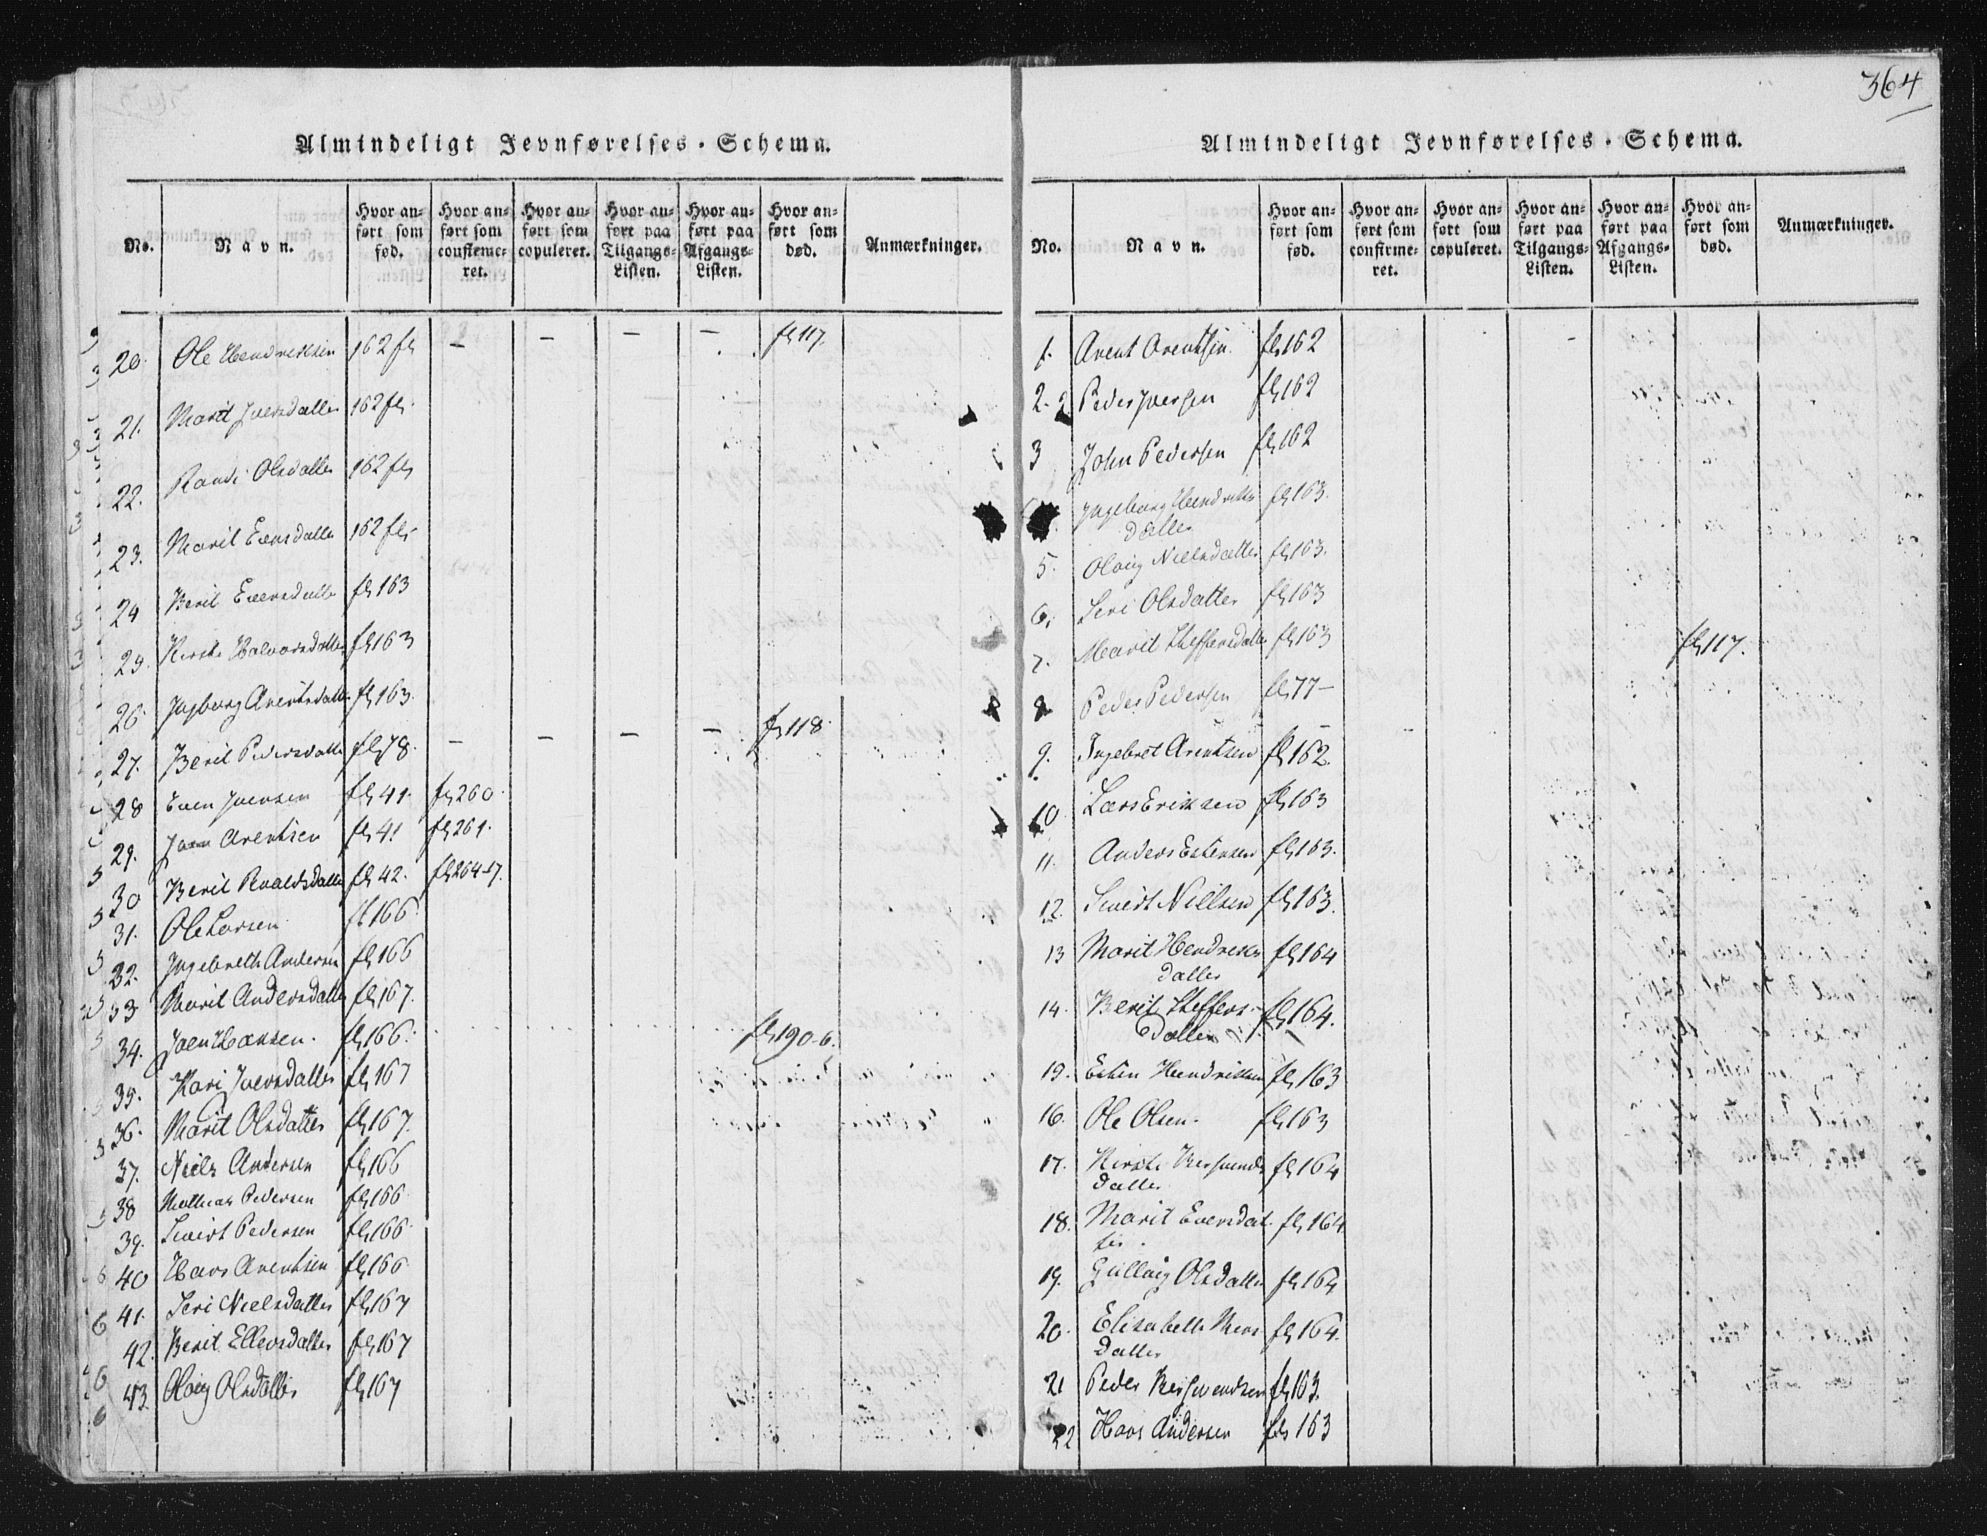 364
Almindeligt Jevnførelses-Schema.
No.
Navn.
Hvor anført som fød.
Hvor anført som confirmeret.
Hvor anført som copuleret.
Hvor anført paa Tilgangs-Listen.
Hvor anført paa Afgangs-Listen.
Hvor anført som død.
Anmærkninger.
20. Ole Hendriksen 162 fl — — — — fl 117
21. Marit Iversdatter 162 fl
22. Randi Olsdatter 162 fl
23. Marit Evensdatter 162 fl
24 Berit Eversdatter fl 163
25. Kirsti Halvorsdatter fl 163
26 Ingborg Arentsdatter fl 163.
27. Berit Pedersdatter fl 78. — — — — fl 118
28 Even Iversen fl 41. fl 260
29. Arentsen fl 41 fl 261.
30 Berit fl 42. fl 264-17.
31. Ole Larsen fl 166
32. Ingebreth Andersen fl 166
33 Marit Andersdatter fl 167.
34. Joen Haksen. fl 166. fl 190-6.
35. Kari Iversdatter fl 167
36. Marit Olsdatter fl 167.
37. Niels Andersen fl 166
38 Mathias Pedersen fl 166
39. Siwert Pedersen fl 166
40 Hans Arentsen fl 166
41. Seri Nielsdatter fl 167
42. Berit Ellevsdatter fl 167
43. Oloug Olsdatter fl 167
Almindeligt Jevnførelses-Schema.
No.
Navn.
Hvor anført som fød.
Hvor anført som confirmeret.
Hvor anført som copuleret.
Hvor anført paa Tilgangs-Listen.
Hvor anført paa Afgangs-Listen.
Hvor anført som død.
Anmærkninger.
1. Arent Arentsen fl 162
2. Peder Iversen fl 162
3 John Pedersen fl 162
Ingeborg Hendriks
datter fl 163.
5. Oloug Nielsdatter fl 163.
6. Seri Olsdatter fl 163
7. Marit Steffensdatter fl 163 fl 117.
8 Peder Pedersen fl 77 —
9. Ingebret Arentsen fl 162.
10 Lars Eriksen fl 163
11. Anders Estensen fl 163.
12. Siwert Nielsen fl 163.
13 Marit Hendriks
datter fl 164
14. Berit Steffens-
datter fl 164.
15. Esten Hendriksen fl 163
16. Ole Olsen. fl 163
17. Kirsti
datter fl 164
18. Marit Eversdat
ter. fl 164
19. Gulloug Olsdatter fl 164
20. Elisabeth
datter fl 164.
21 Peder fl 163.
22 Hans Andersen fl 163